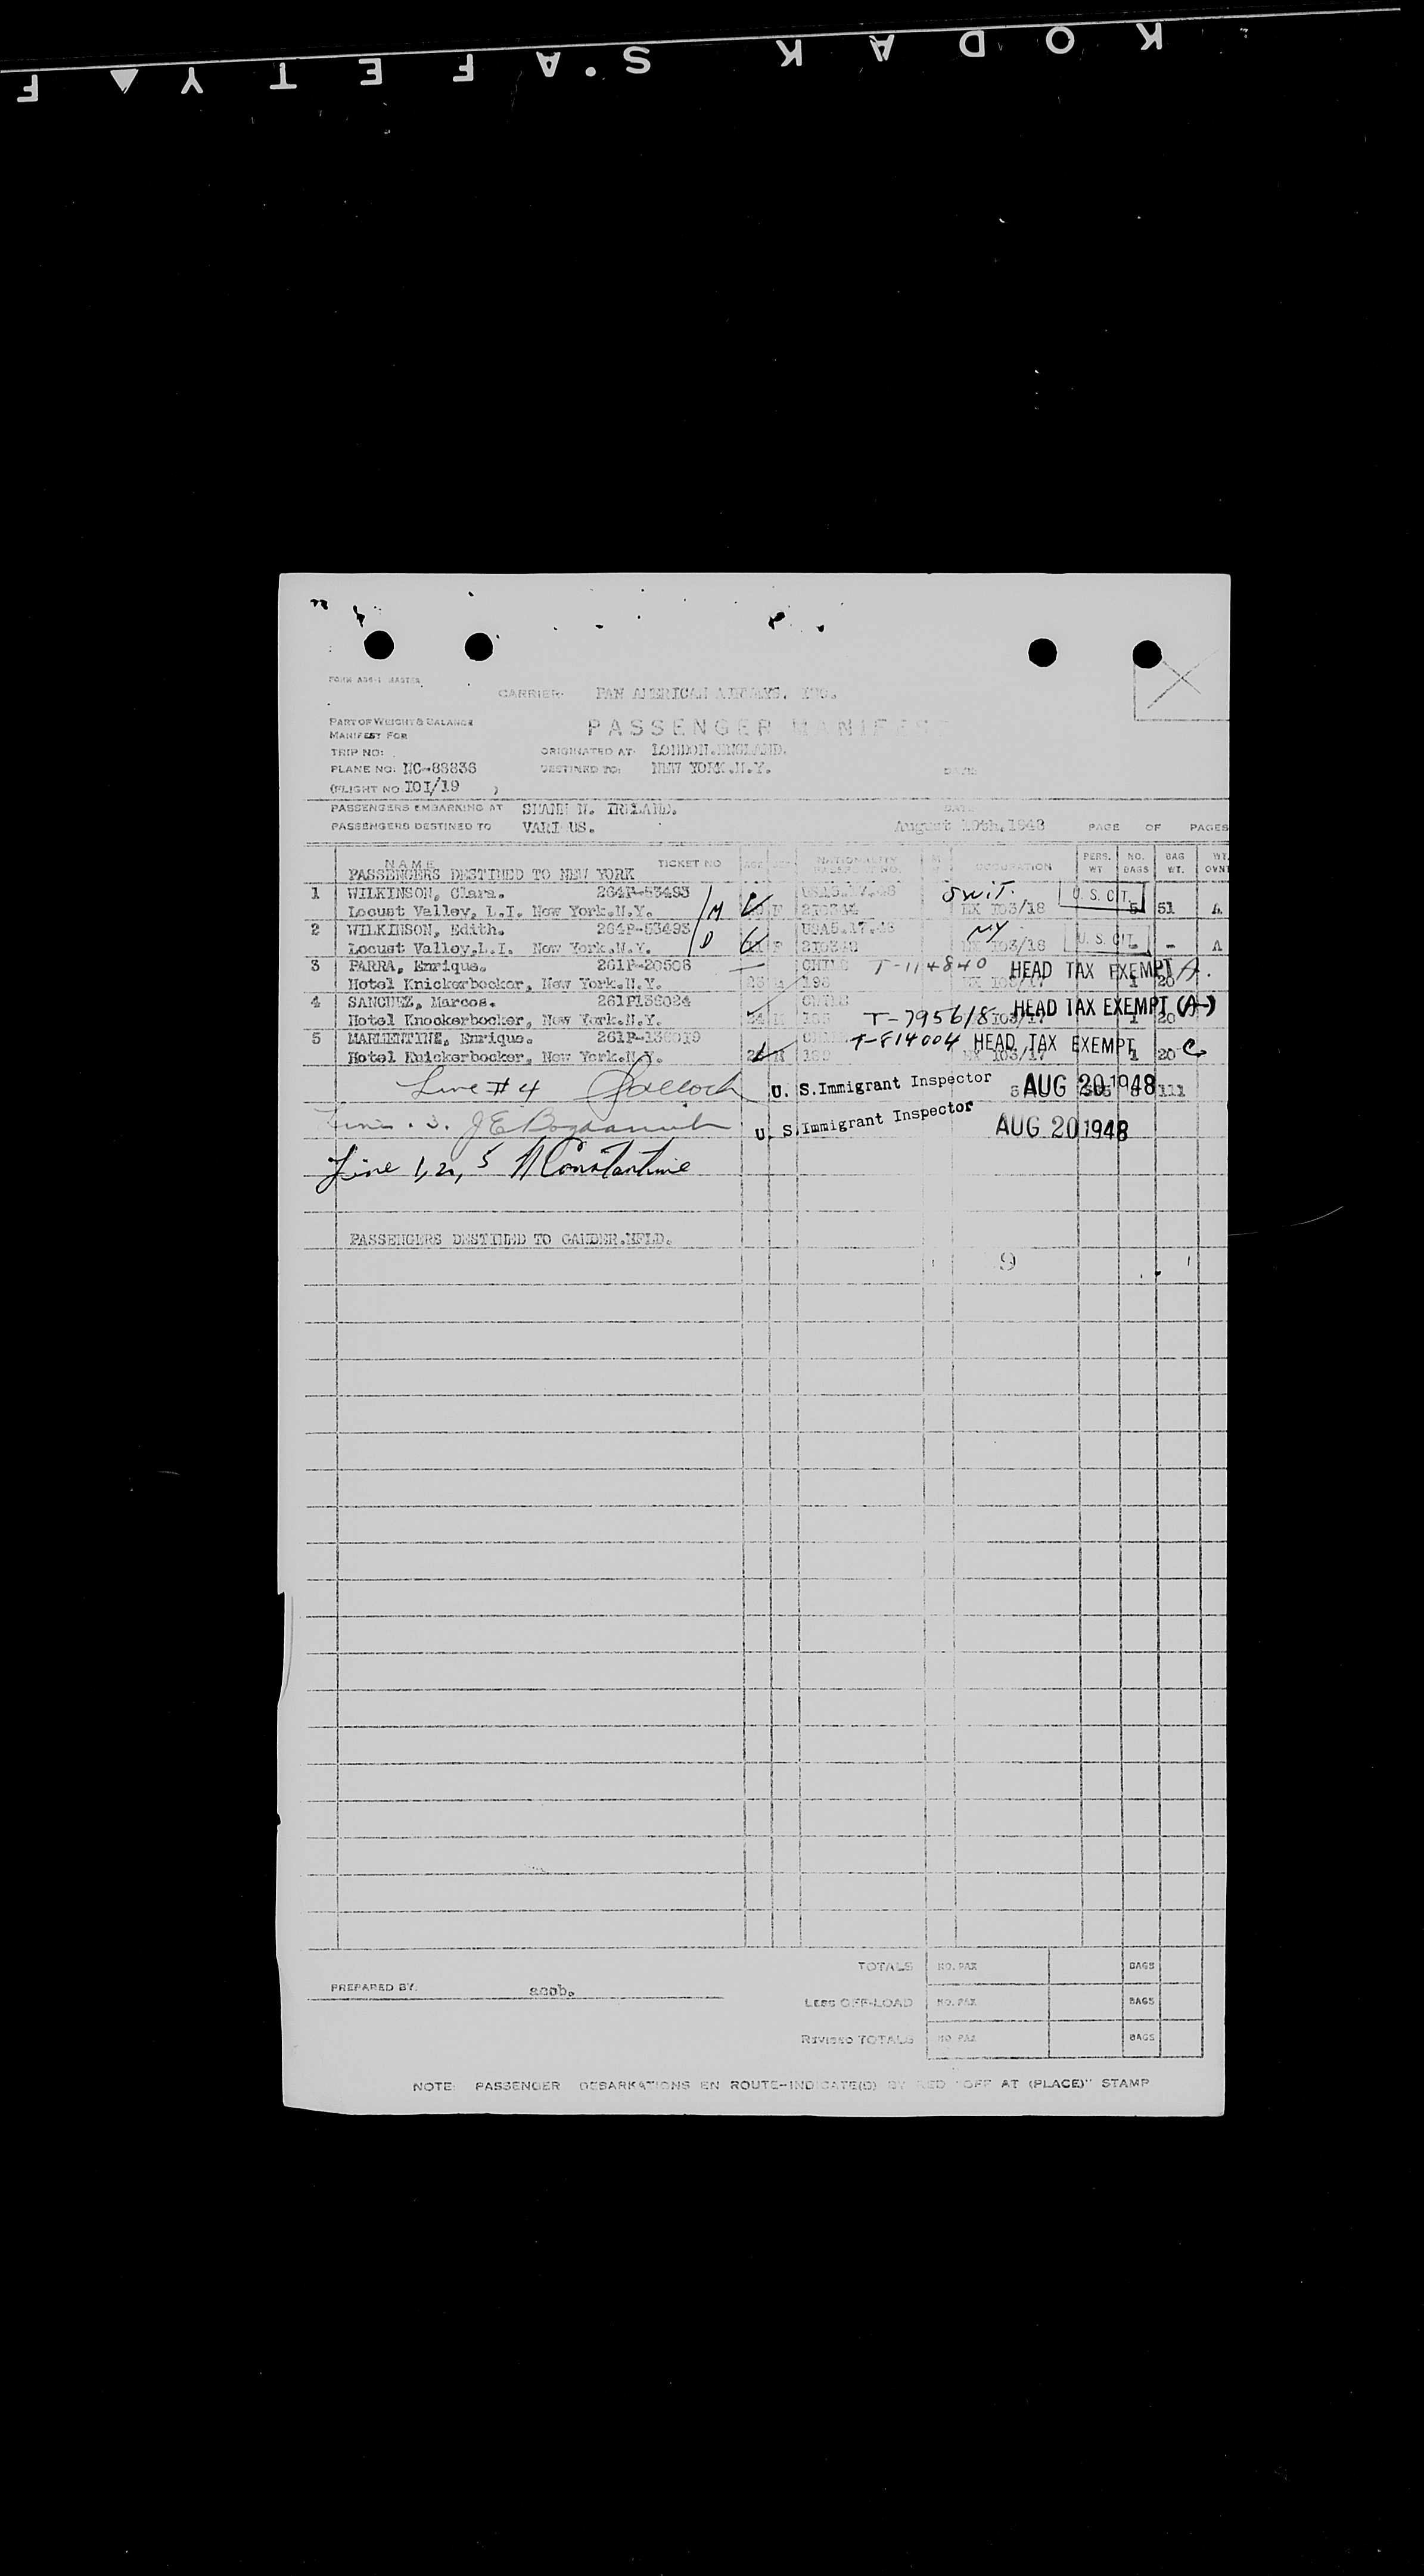 KODAK SAFETY F
FORM ADS-1 MASTER
CARRIER- PAN AMERICAN AIRWAYS. INC.
PART OF WEIGHT & BALANCE
MANIFEST FOR
PASSENGER MANIFEST
TRIP NO:
ORIGINATED AT: LONDON.ENGLAND.
PLANE NO. NC-88838
DESTINED TO: NEW YORK.N.Y.
DATE
(FLIGHT NO 101/19 )
PASSENGERS EMBARKING AT IRELAND.
DATE
PASSENGERS DESTINED TO VARI US.
August 19th.1948
PAGE OF PAGES
NAME TICKET NO. NATIONALITY PASSPORT NO. OCCUPATION PERS. WT NO. BAGS BAG WT. WT.
PASSENGERS DESTINED TO NEW YORK
1 WILKINSON, Clara. 264P-53493 Swit. U. S. CIT.
Locust Valley, L.I. New York.N.Y. M F EX 103/18 5 51 A
2 WILKINSON, Edith. 264P-53493 USA5.17.48 NY U. S. CIT.
Locust Valley.L.I. New York.N.Y. D F EX 103/18 - - A
3 PARRA, Enrique. 261P-20508 CHILE T-114840 HEAD TAX EXEMPT A.
Hotel Knickerbocker, New York.N.Y. 1 20
4 SANCHEZ, Marcos. 261P136024 CHILE HEAD TAX EXEMPT (A-)
Hotel Knockerbocker, New York.N.Y. T-795618 103/17 1 20
5 Enrique. T-814004 HEAD TAX EXEMPT
Hotel Knickerbocker, New York.N.Y. EX 103/17 1 20 C
Line #4 U. S. Immigrant Inspector AUG 20 1948 111
U. S. Immigrant Inspector AUG 20 1948
Line 1, 2, 5 Constantine
PASSENGERS DESTINED TO GANDER.NFLD.
9
TOTALS NO. PAX BAGS
PREPARED BY.
LESS OFF-LOAD NO. PAX BAGS
REVISED TOTALS NO PAX BAGS
NOTE: PASSENGER DEBARKATIONS EN ROUTE-INDICATE(D) BY RED "OFF AT (PLACE)" STAMP